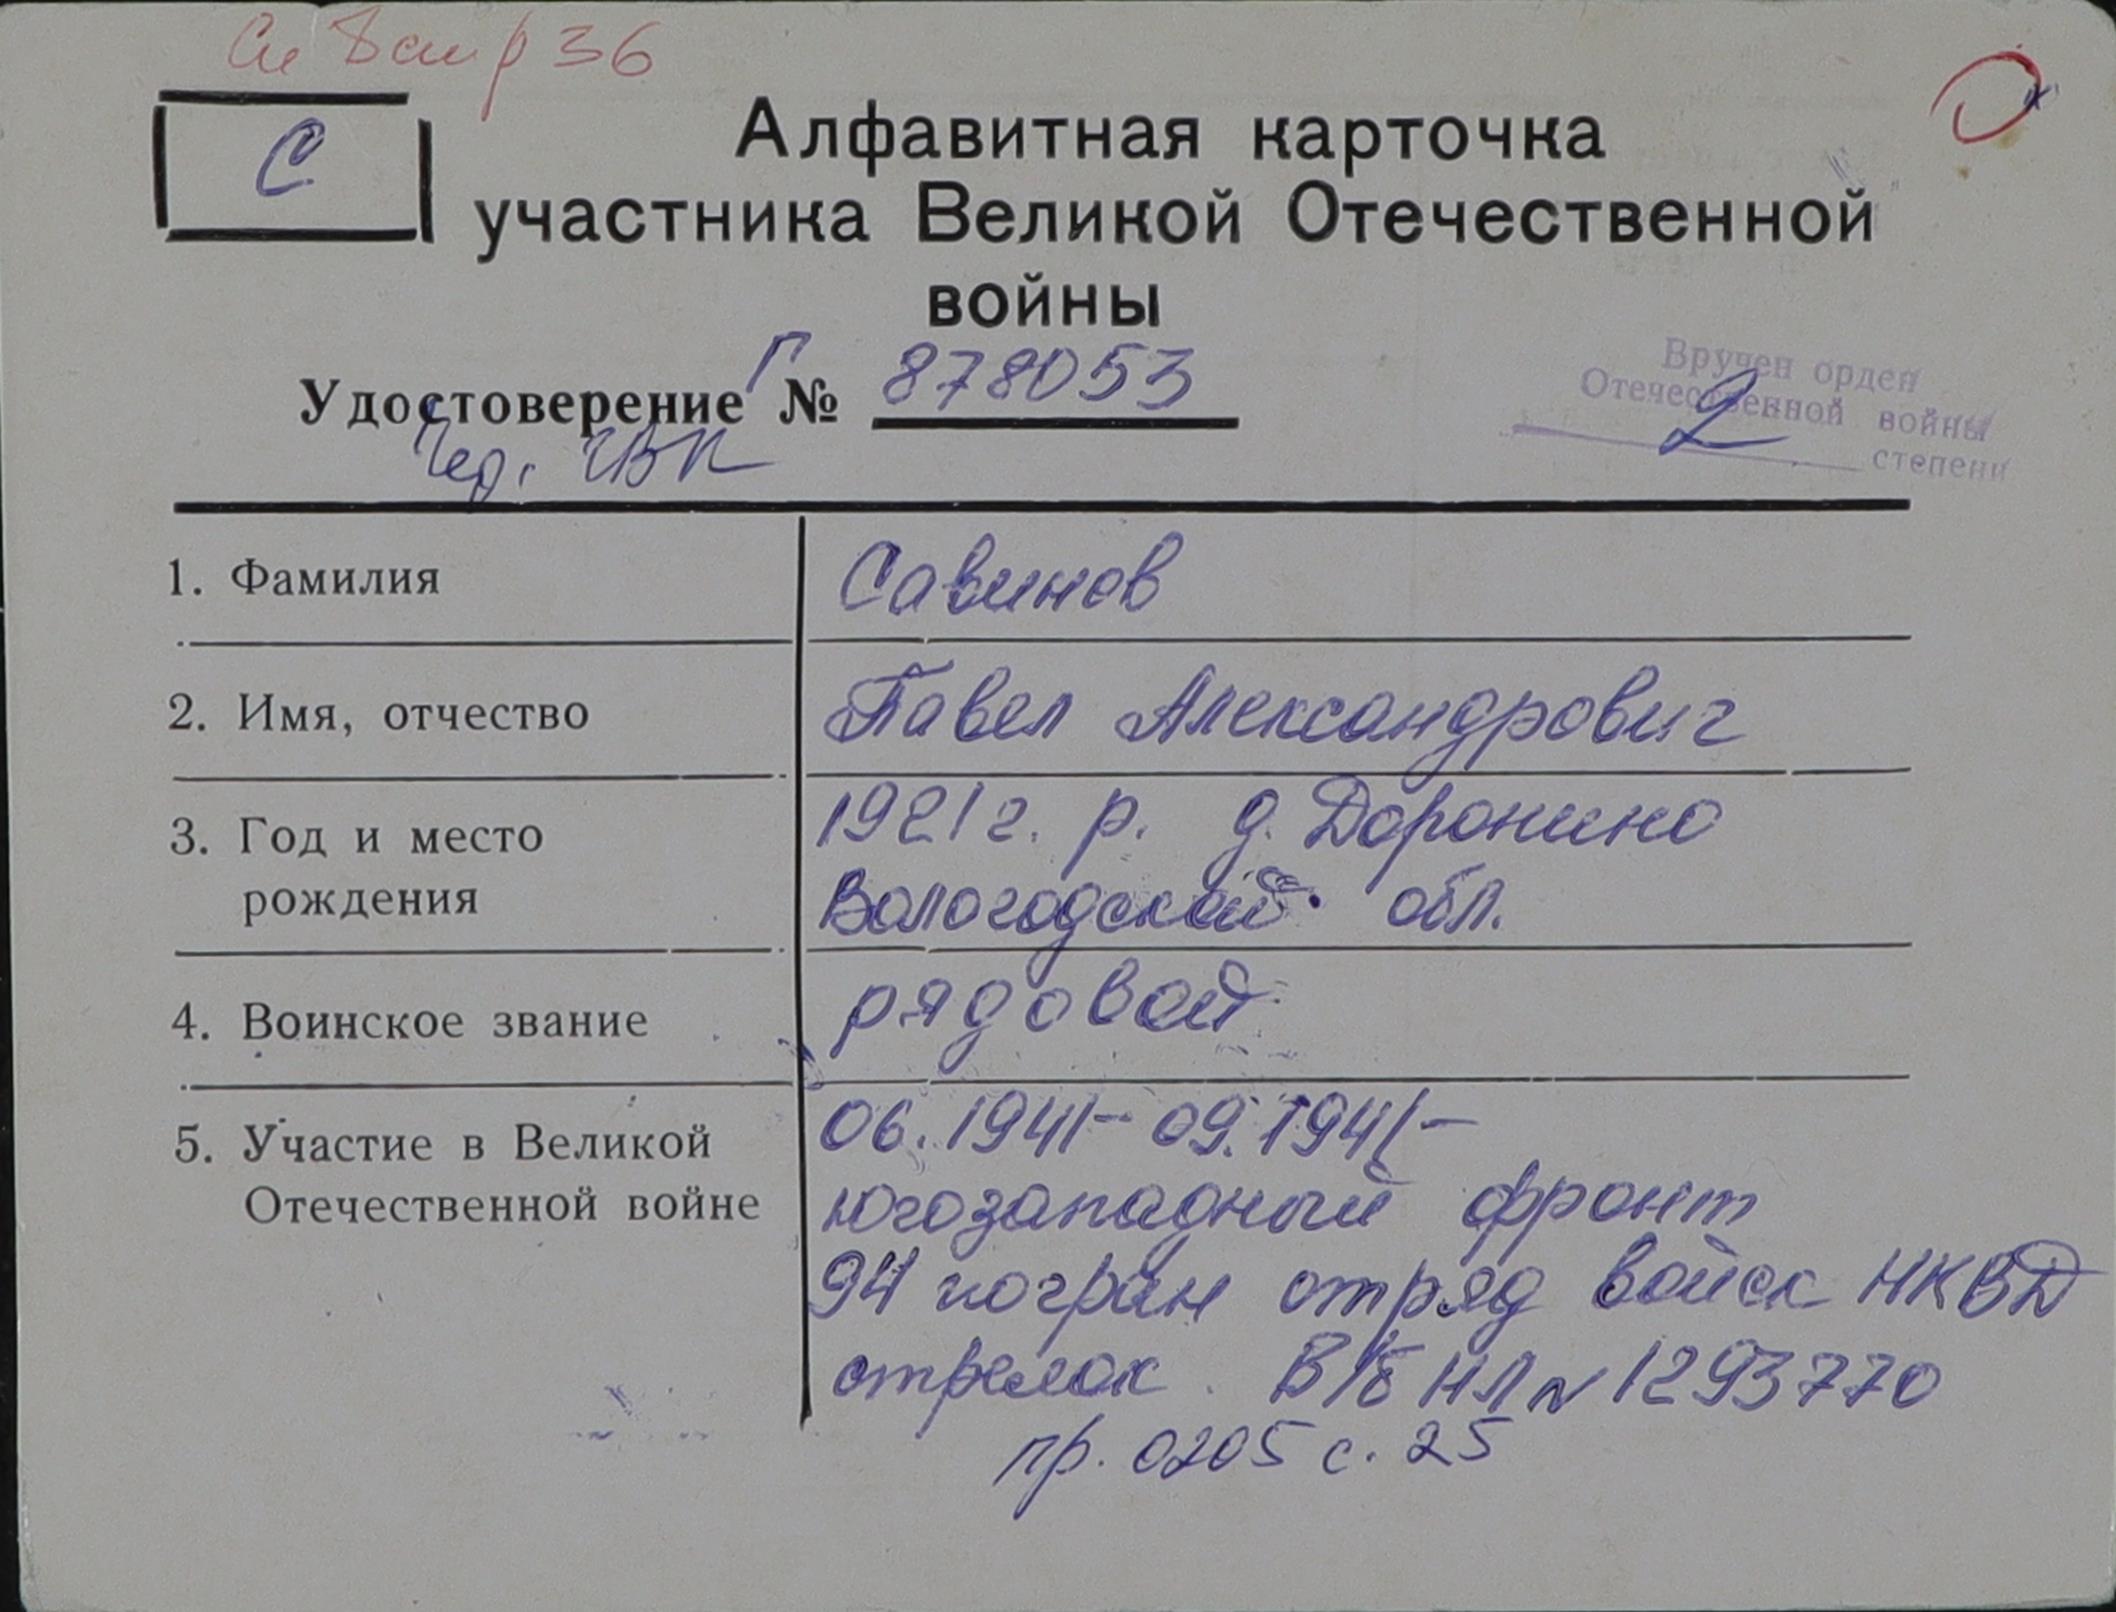 36
С
Алфавитная карточка
участника Великой Отечественной
войны
Удостоверение Г № 878053
Чер. ГВК
Вручен орден
Отечественной войны
2 степени
1. Фамилия
Савинов
2. Имя, отчество
Павел Александрович
3. Год и место
рождения
1921 г. р. д. Доронино
Вологодской обл.
4. Воинское звание
рядовой
5. Участие в Великой
Отечественной войне
06.1941- 09.1941-
югозападный фронт
94 погран отряд войск НКВД
стрелок. В/б НЛ N 1293770
пр. 0205 с. 25